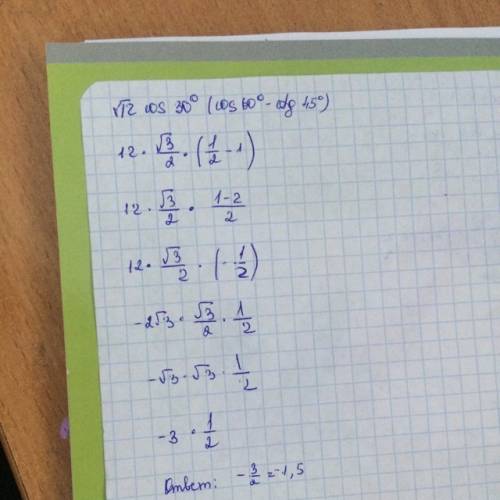 √12 cos 30° (cos 60° - ctg 45°)
12 · √3/2 · (1/2 - 1)
12 · √3/2 · 1-2/2
12 · √3/2 · (-1/2)
-2√3 · √3/2 · 1/2
-√3 · √3 · 1/2
-3 · 1/2
Ответ: -3/2 = -1,5